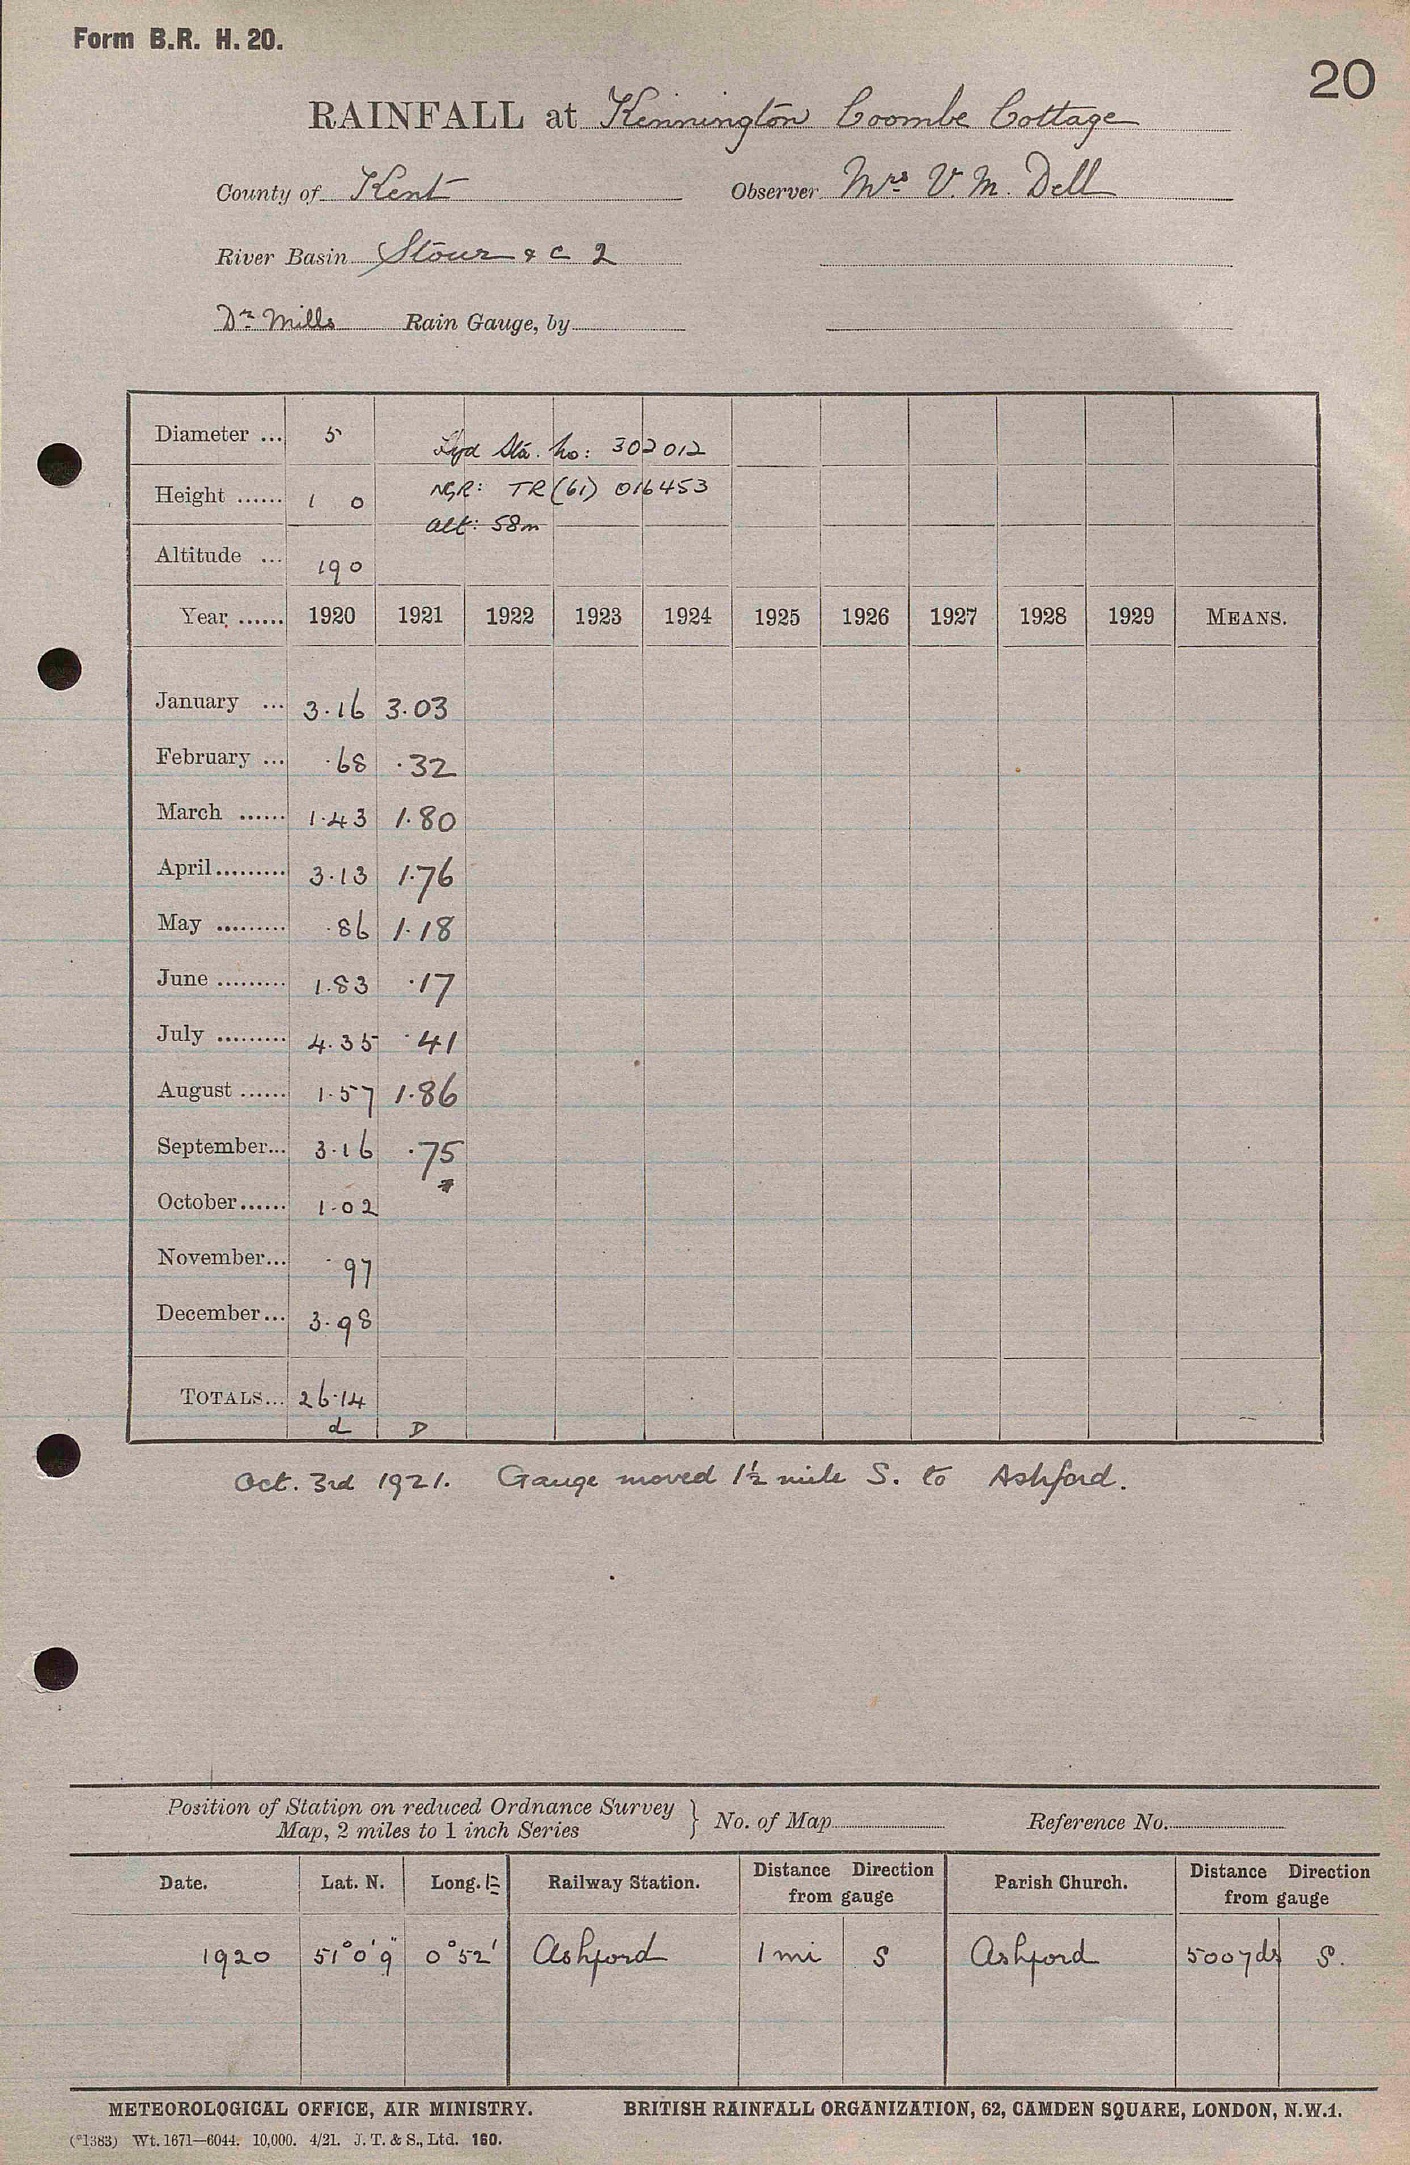 Form B.R. H. 20.
20
RAINFALL at Kennington Coombe Cottage
County of Kent Observer Mrs V. M. Dell
River Basin Stour & c 2
Dr Mills Rain Gauge, by
Diameter ... 5 Hyd Sta. No: 302012
Height ...... 1 0 NGR: TR (61) 016453
alt: 58m
Altitude ... 190
Year ...... 1920 1921 1922 1923 1924 1925 1926 1927 1928 1929 MEANS.
January ... 3.16 3.03
February ... .68 .32
March ...... 1.43 1.80
April......... 3.13 1.76
May ......... .86 1.18
June ......... 1.83 .17
July ......... 4.35 .41
August ...... 1.57 1.86
September... 3.16 .75
*
October...... 1.02
November... .97
December... 3.98
TOTALS... 26.14
d D
Oct. 3rd 1921. Gauge moved 1½ mile S. to Ashford.
Position of Station on reduced Ordnance Survey
Map, 2 miles to 1 inch Series } No. of Map Reference No.
Date. Lat. N. Long. E Railway Station. Distance Direction from gauge Parish Church. Distance Direction from gauge
1920 51°0'9" 0°52' Ashford 1 mi S Ashford 500 yds S.
METEOROLOGICAL OFFICE, AIR MINISTRY. BRITISH RAINFALL ORGANIZATION, 62, CAMDEN SQUARE, LONDON, N.W.1.
(*1383) Wt. 1671—6044. 10,000. 4/21. J. T. & S., Ltd. 160.